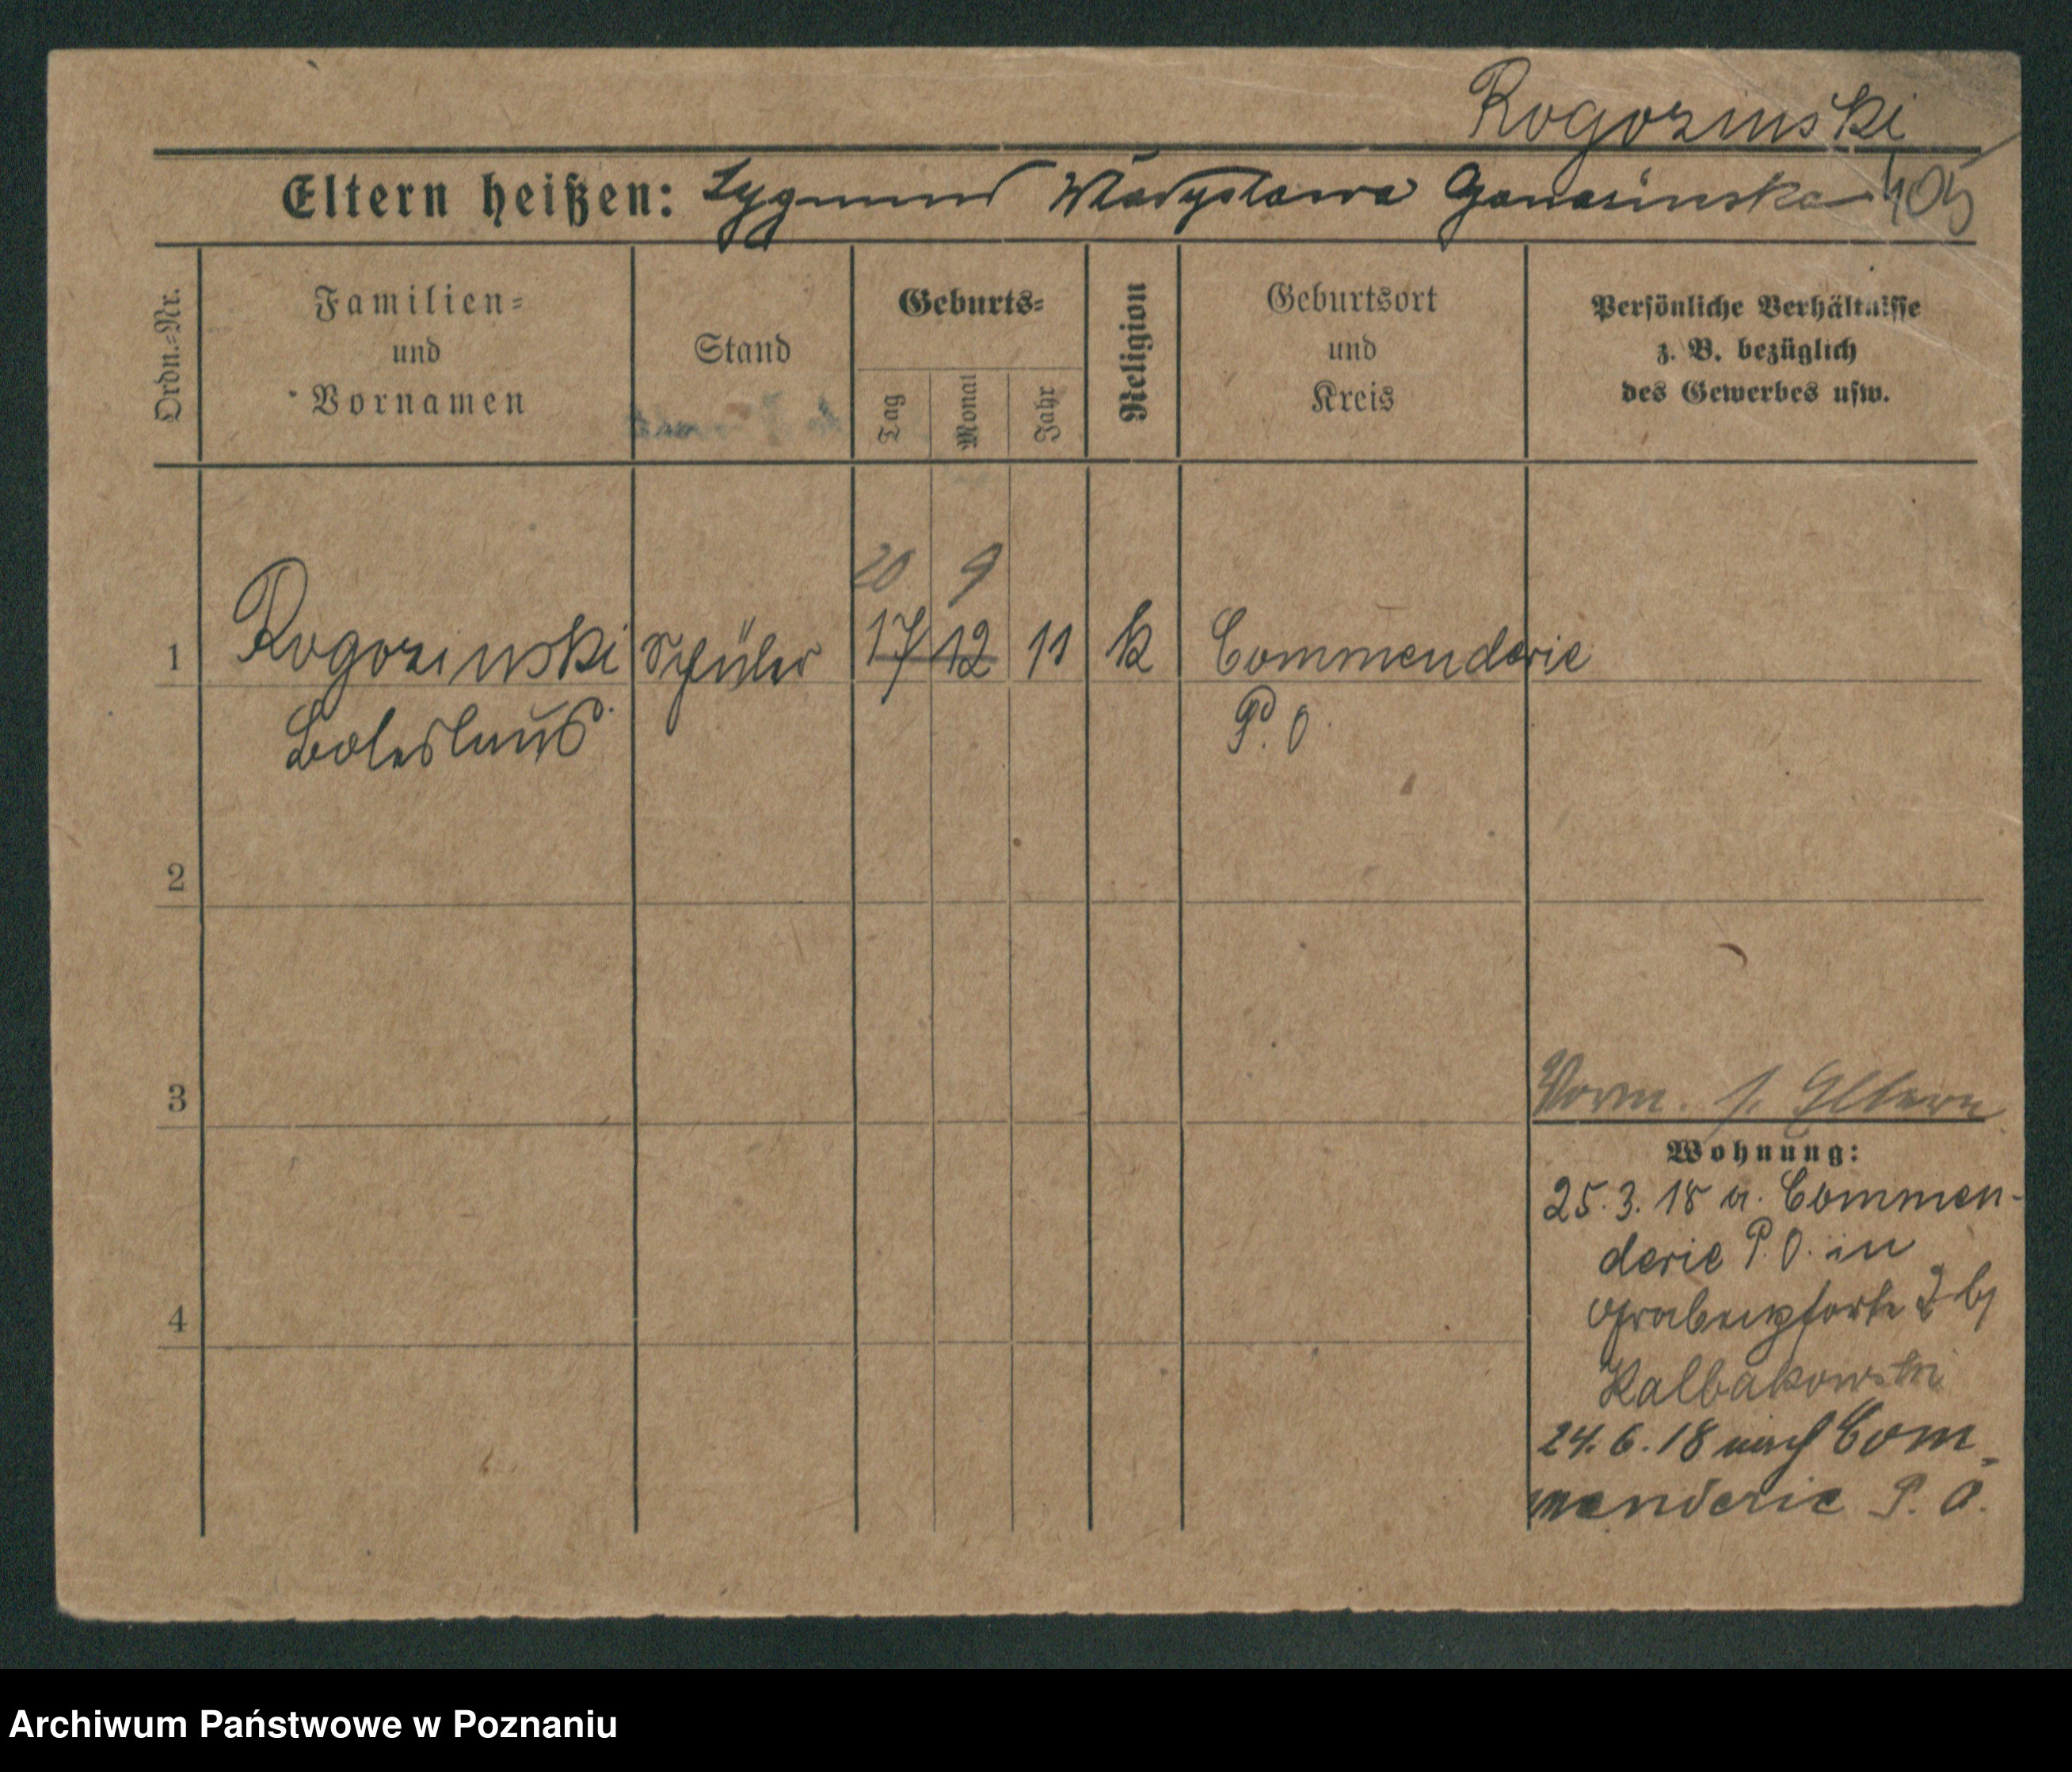 Rogozinski
Eltern heißen: Zygmund Wladyslawa Ganasinska 405
Ordn.-Nr.
Familien-
und
Vornamen
Stand
Geburts-
Tag
Monat
Jahr
Religion
Geburtsort
und
Kreis
Persönliche Verhältnisse
z. B. bezüglich
des Gewerbes usw.
20 9
1 Rogozinski Schüler 17 12 11 k Commenderie
Boleslaus P. O.
2
3
Vorm. s. Eltern
Wohnung:
25. 3. 18 a. Commen-
derie P. O. in
4
Grabenpforte 2 bj
Kalbakowski
24. 6. 18 nach Com-
menderie P. O.
Archiwum Państwowe w Poznaniu